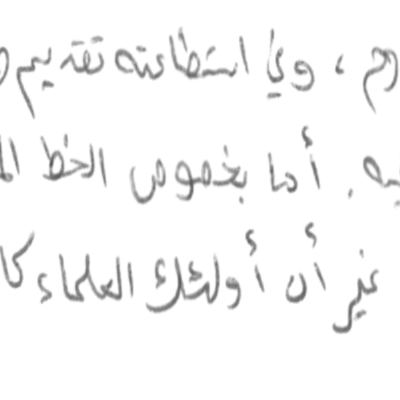 ، وفي استطاعته تقديم
. أما بخصوص الخط
غير أن أولئك العلماء كا